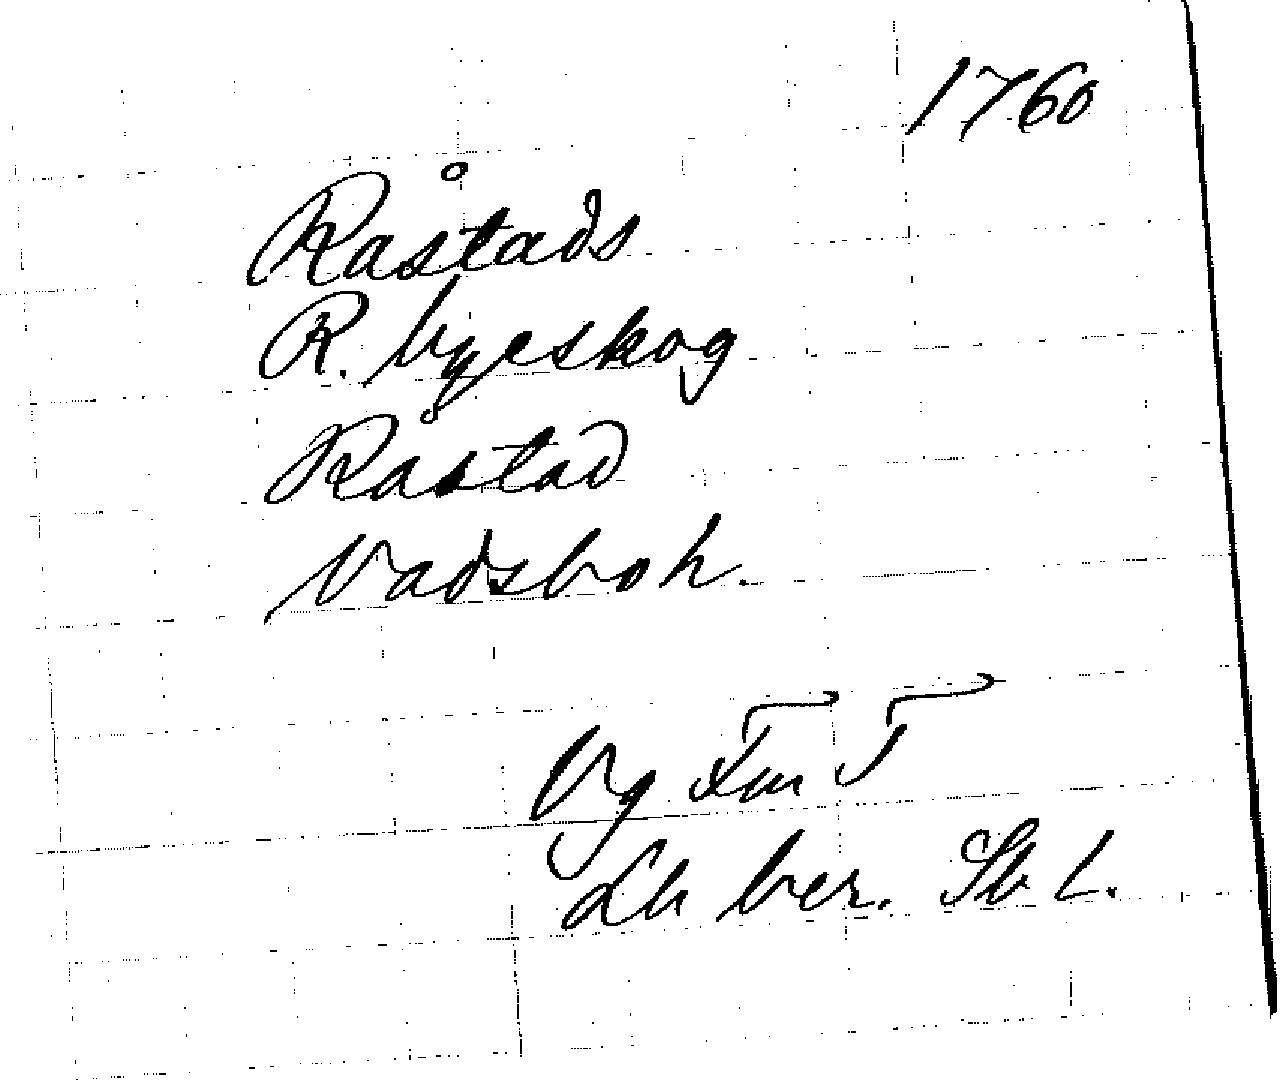 1760
Råstads
R. byeskog
Råstad
Vadsboh.
Vg
Lh ber. Sk L.